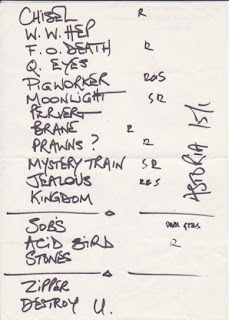 CHISEL R
W.W. HEP
F.O. DEATH R
Q. EYES
PIGWORKER R&S
MOONLIGHT SR
PERVERT
BRANE R
PRAWNS? R
MYSTERY TRAIN SR
JEALOUS R&S
KINGDOM
SOBS
ACID BIRD R
STONES
ZIPPER
DESTROY U.
ASTORIA 15/1